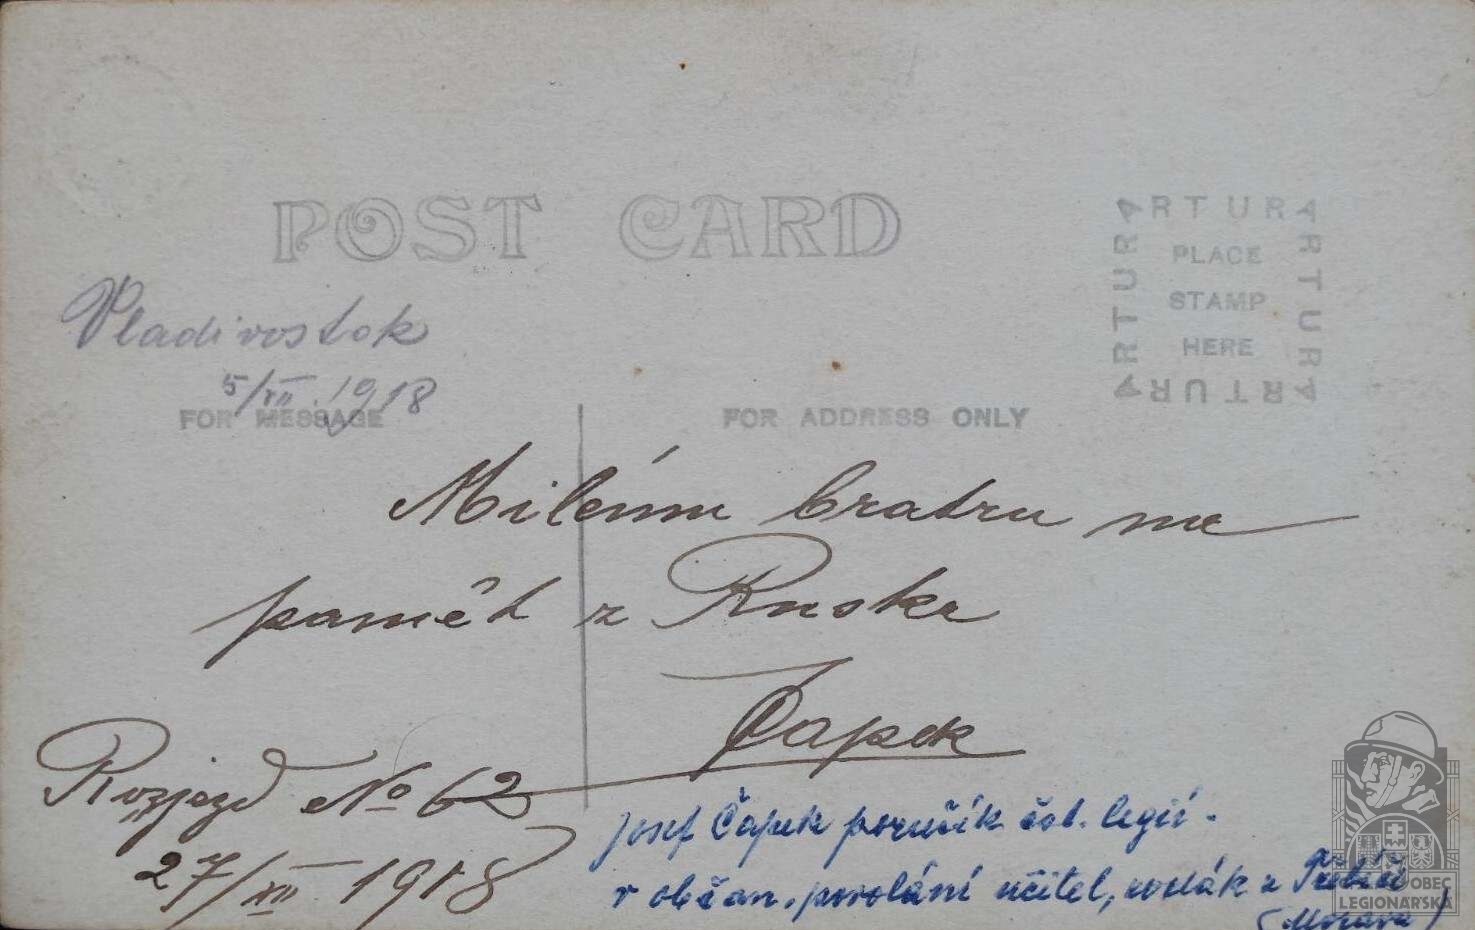 POST CARD
ARTURA
ARTURA
ARTURA
ARTURA
PLACE
STAMP
HERE
Vladivostok
5/VII. 1918
FOR MESSAGE
FOR ADDRESS ONLY
Milému bratru na
paměť z Ruska
Čapek
Rozjezd No 62
27/XII 1918
Josef Čapek poručík čsl. legií.
v občan. povolání učitel, rodák z Třebíče
(Morava)
OBEC
LEGIONÁŘSKÁ